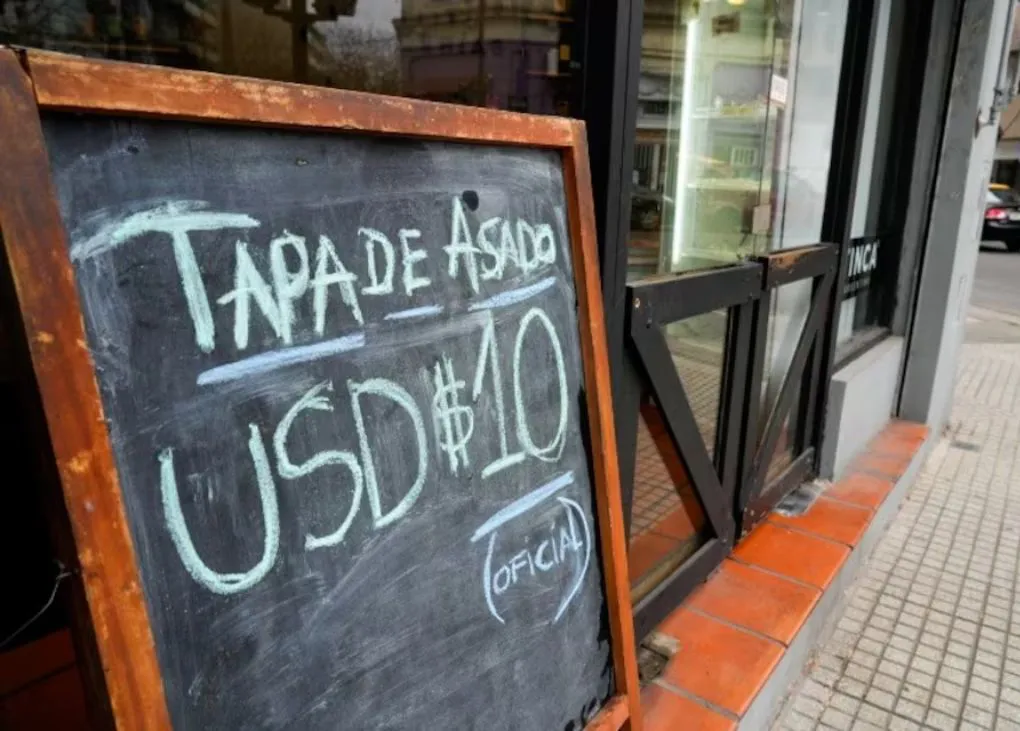 TAPA DE ASADO
USD $10
(OFICIAL)
INCA